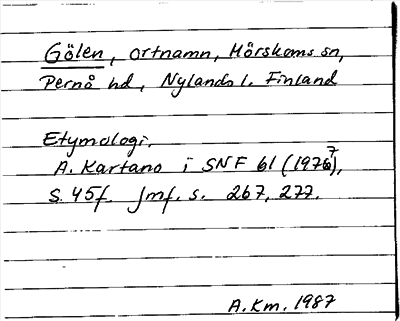 Gölen, ortnamn, Mörskoms sn,
Pernå hd, Nylands l. Finland
Etymologi.
A. Kartano i SNF 61 (1977),
s. 45f. Jmf. s. 267, 277.
A.Km. 1987